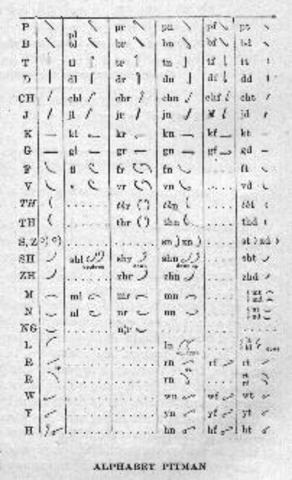 P pl pr pn pf pt
B bl br bn bf bt
T tl tr tn tf tt
D dl dr dn df dd
CH chl chr chn chf cht
J jl jr jn jf jd
K kl kr kn kf kt
G gl gr gn gf gd
F fl fr fn ft
V vr vn vd
TH thr thn tht
TH thr thn thd
S, Z sn zn st zd
SH shl shr shn sht
ZH zhr zhn zhd
M ml mr mn
N nl nr nn
NG ngr
L ln
R rn rf rt
R rn
W wn wf wt
Y yn yf yt
H hn hf ht
ALPHABET PITMAN